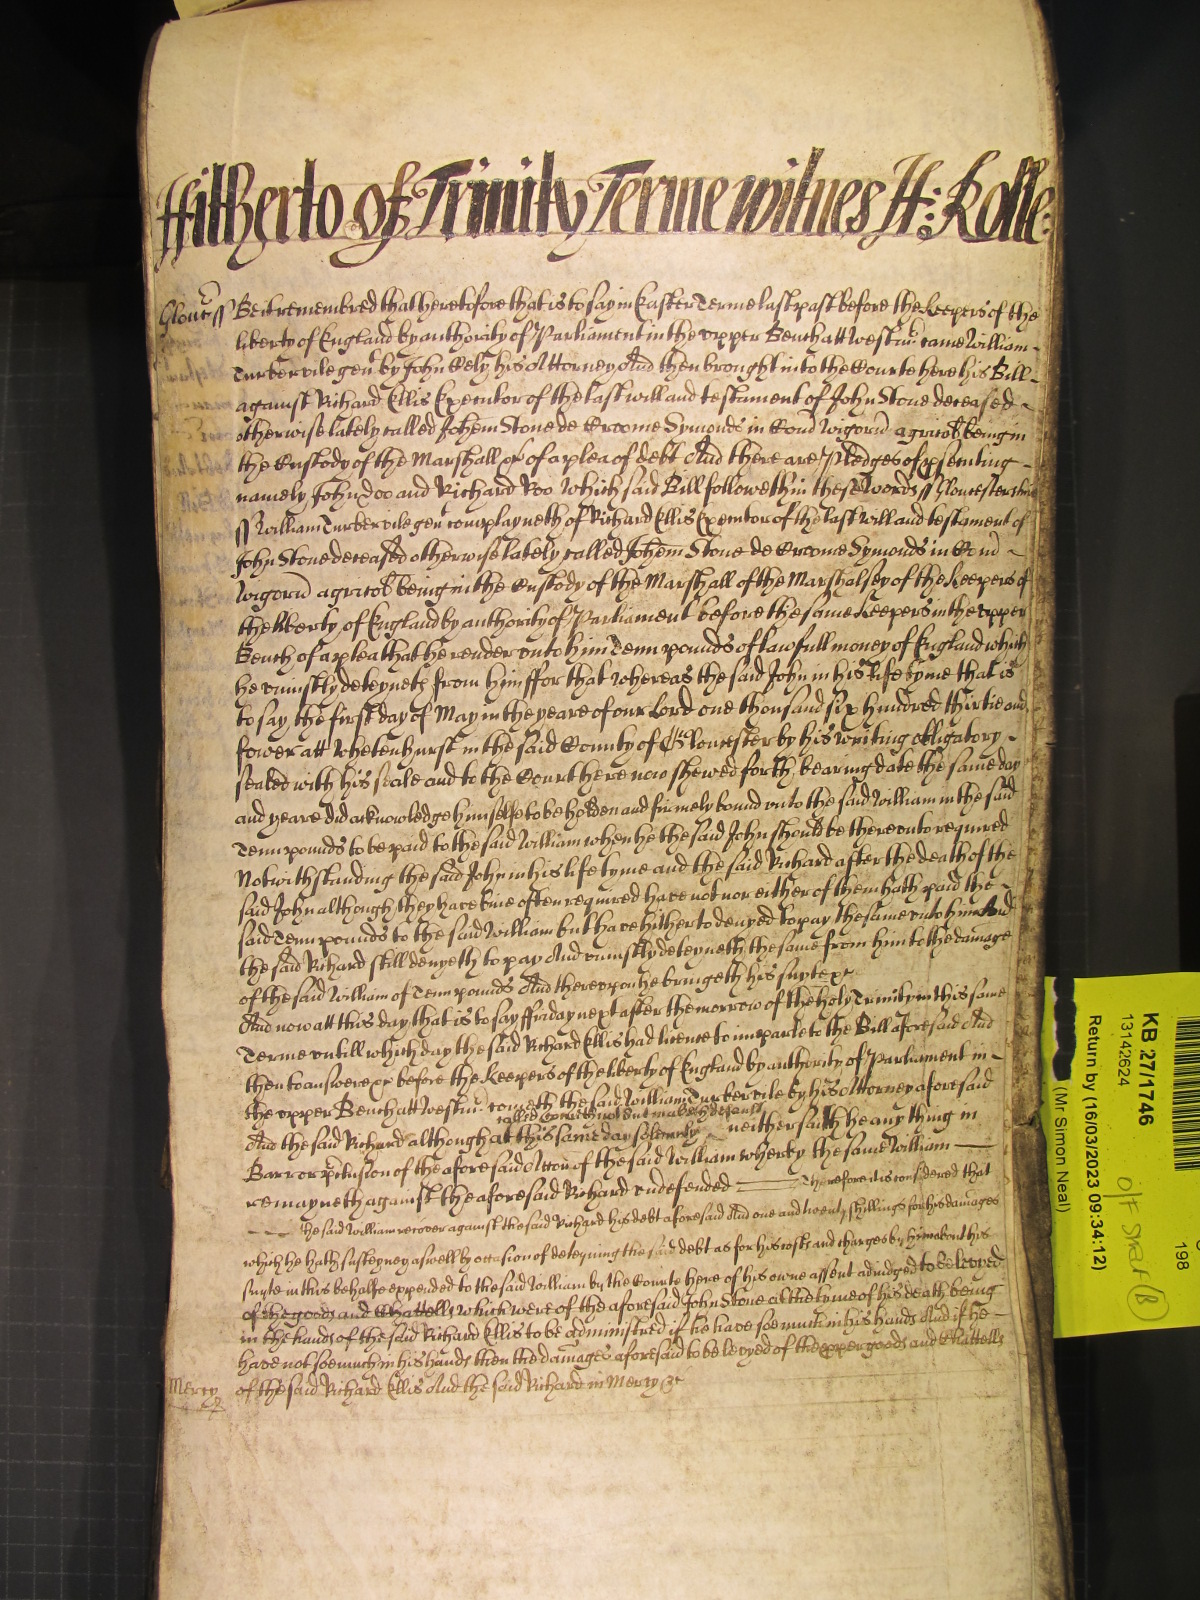 Hitherto of Trinity Terme witnes H: Rolle:
Glouc ss Be it remembred that heretofore that is to say in Easter Terme last past before the Keepers of the
liberty of England by authority of Parliament in the upper Bench att Westm came William
Turbervile gen by John his Attorney And then brought into the Courte here his Bill
against Richard Ellis Executor of the last will and testament of John Stone deceased
otherwise lately called Johem Stone de Croome Symonds in Com Wigorn being in
the Custody of the Marshall &c of a plea of debt And there are Pledges of psenting
namely John Doo and Richard Roo Which said Bill followeth in these words ss Gloucestershire
ss William Turbervile gen complayneth of Richard Ellis Executor of the last will and testament of
John Stone deceased otherwise lately called Johem Stone de Croome Symonds in Com
Wigorn being in the Custody of the Marshall of the Marshalsey of the Keepers of
the liberty of England by authority of Parliament before the same Keepers in the upper
Bench of a plea that he render unto him Tenn pounds of lawfull money of England which
he uniustly deteyneth from him ffor that whereas the said John in his life tyme that is
to say the first day of May in the yeare of our Lord one thousand six hundred thirtie and
fower att Whetenhurst in the said County of Gloucester by his writing obligatory
sealed with his seale and to the Court here now shewed forth bearing date the same day
and yeare did acknowledge himselfe to be holden and firmely bound unto the said William in the said
Tenn pounds to be paid to the said William when he the said John should be thereunto required
Notwithstanding the said John in his life tyme and the said Richard after the death of the
said John although they have bine often required have not nor either of them hath paid the
said Tenn pounds to the said William but have hitherto denyed to pay the same unto him And
the said Richard still denyeth to pay And uniustly deteyneth the same from him to the damage
of the said William of Tenn pounds And thereupon he bringeth his suyte &c
And now att this day that is to say ffriday next after the morrow of the holy Trinity in this same
Terme untill which day the said Richard Ellis had licence to imparle to the Bill aforesaid And
then to answere &c before the Keepers of the liberty of England by authority of Parliament in
the upper Bench att Westm cometh the said William Turbervile by his Attorney aforesaid
called cometh not but maketh default
And the said Richard although at this same day solemnly neither saith he any thing in
Barr or pclusion of the aforesaid Accon of the said William wherby the same William
remayneth against the aforesaid Richard undefended Therefore it is considered that
the said William recover against the said Richard his debt aforesaid And one and twenty shillings for his damages
which he hath susteyned aswell by occasion of deteyning the said debt as for his costs and charges by him about his
suyte in this behalfe expended to the said William by the Courte here of his owne assent adiudged to be levyed
of the goods and Chattells which were of the aforesaid John Stone at the tyme of his death being
in the hands of the said Richard Ellis to be administred if he have soe much in his hands And if he
have not soe much in his hands then the damages aforesaid to be levyed of the pper goods and Chattells
Mercy of the said Richard Ellis And the said Richard in Mercy &c
KB 27/1746
13142624
Return by (16/03/2023 09:34:12)
(Mr Simon Neal)
198